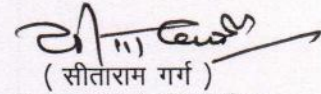 ( सीताराम गर्ग )